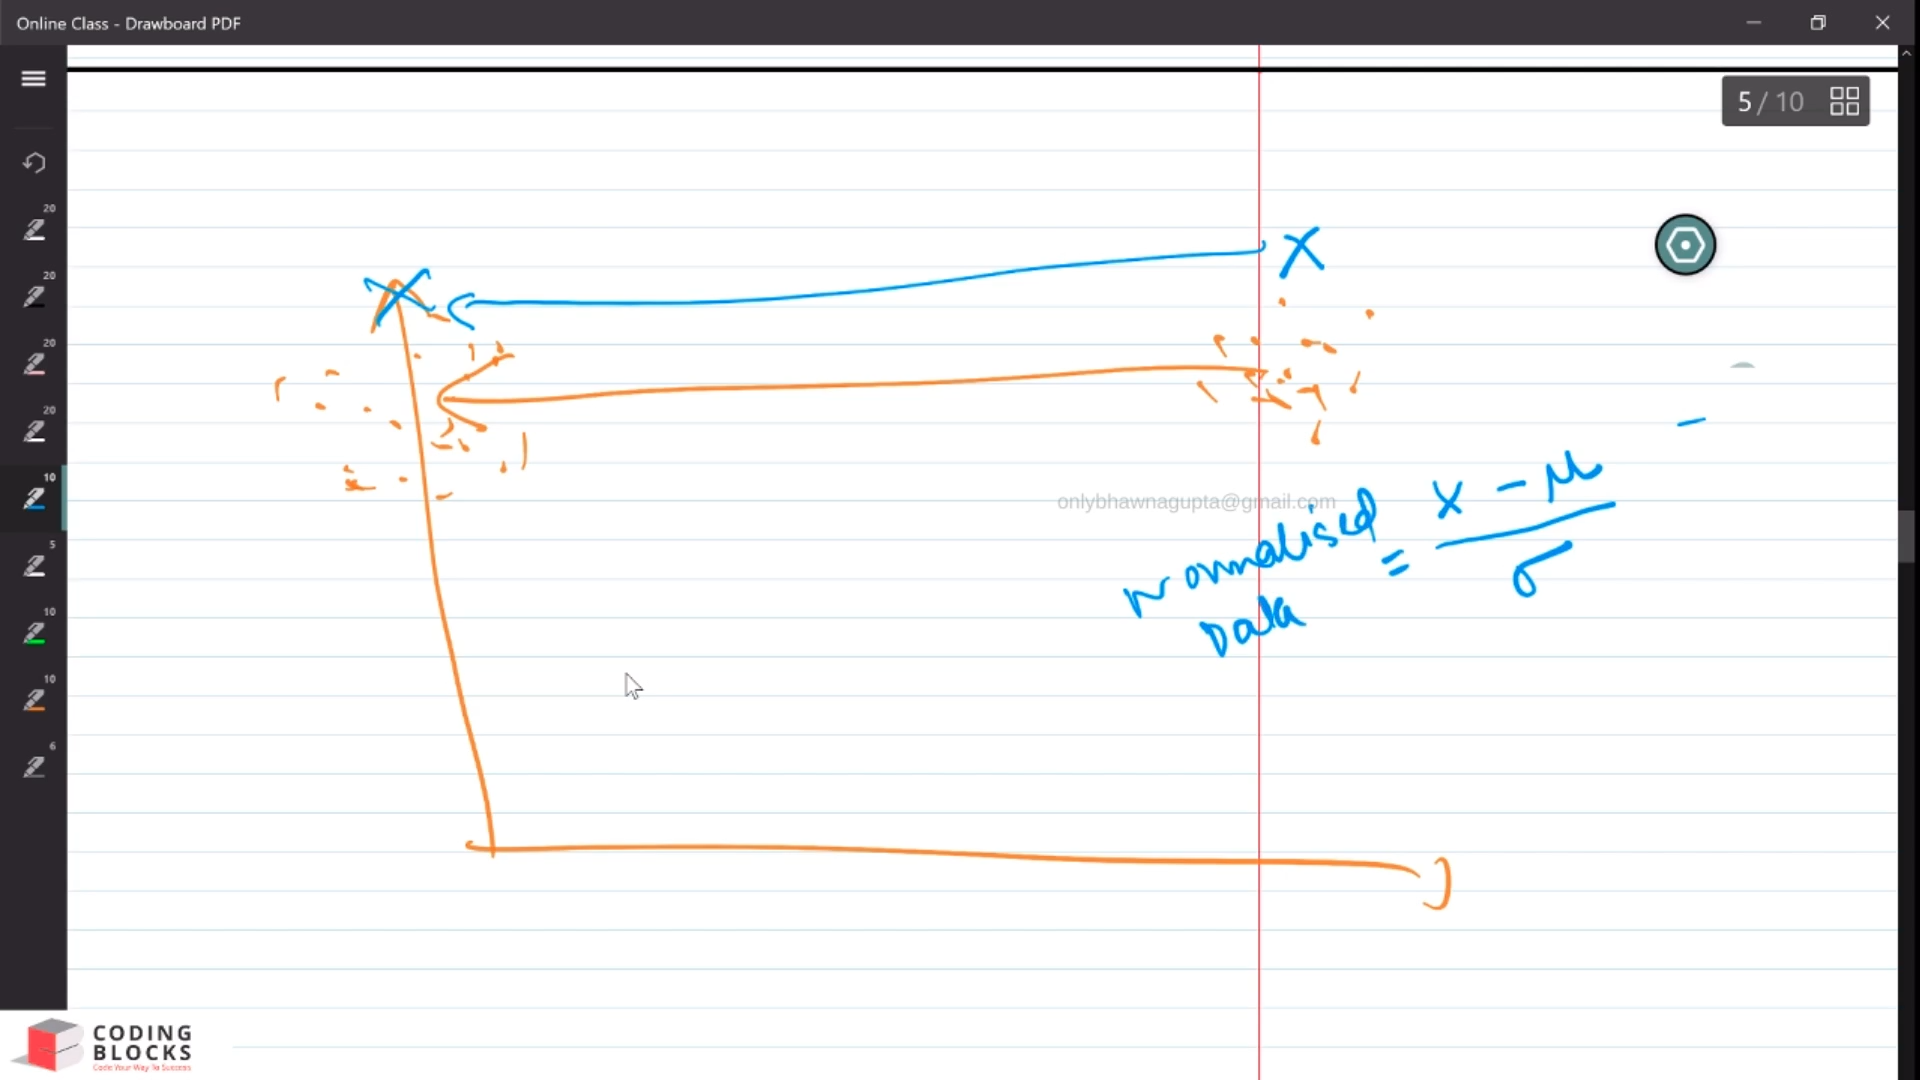 Online Class - Drawboard PDF
5 / 10
20
20
20
20
10
5
10
10
6
X
X
onlybhawnagupta@gmail.com
Normalised Data = x - μ
σ
CODING
BLOCKS
Code Your Way To Success